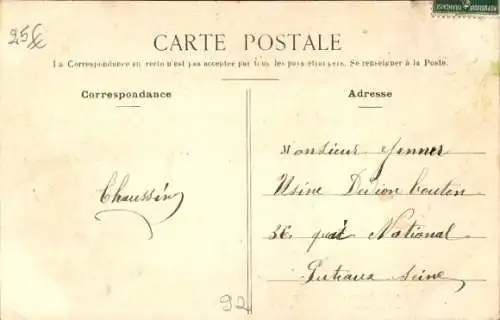 25€
RÉPUBLIQUE FRANÇAISE
CARTE POSTALE
La Correspondance au recto n'est pas acceptée par tous les pays étrangers. Se renseigner à la Poste.
Correspondance
Adresse
Monsieur Jenner
Usine Dedion bouton
36 quai National
Puteaux Seine
Chaussin
92